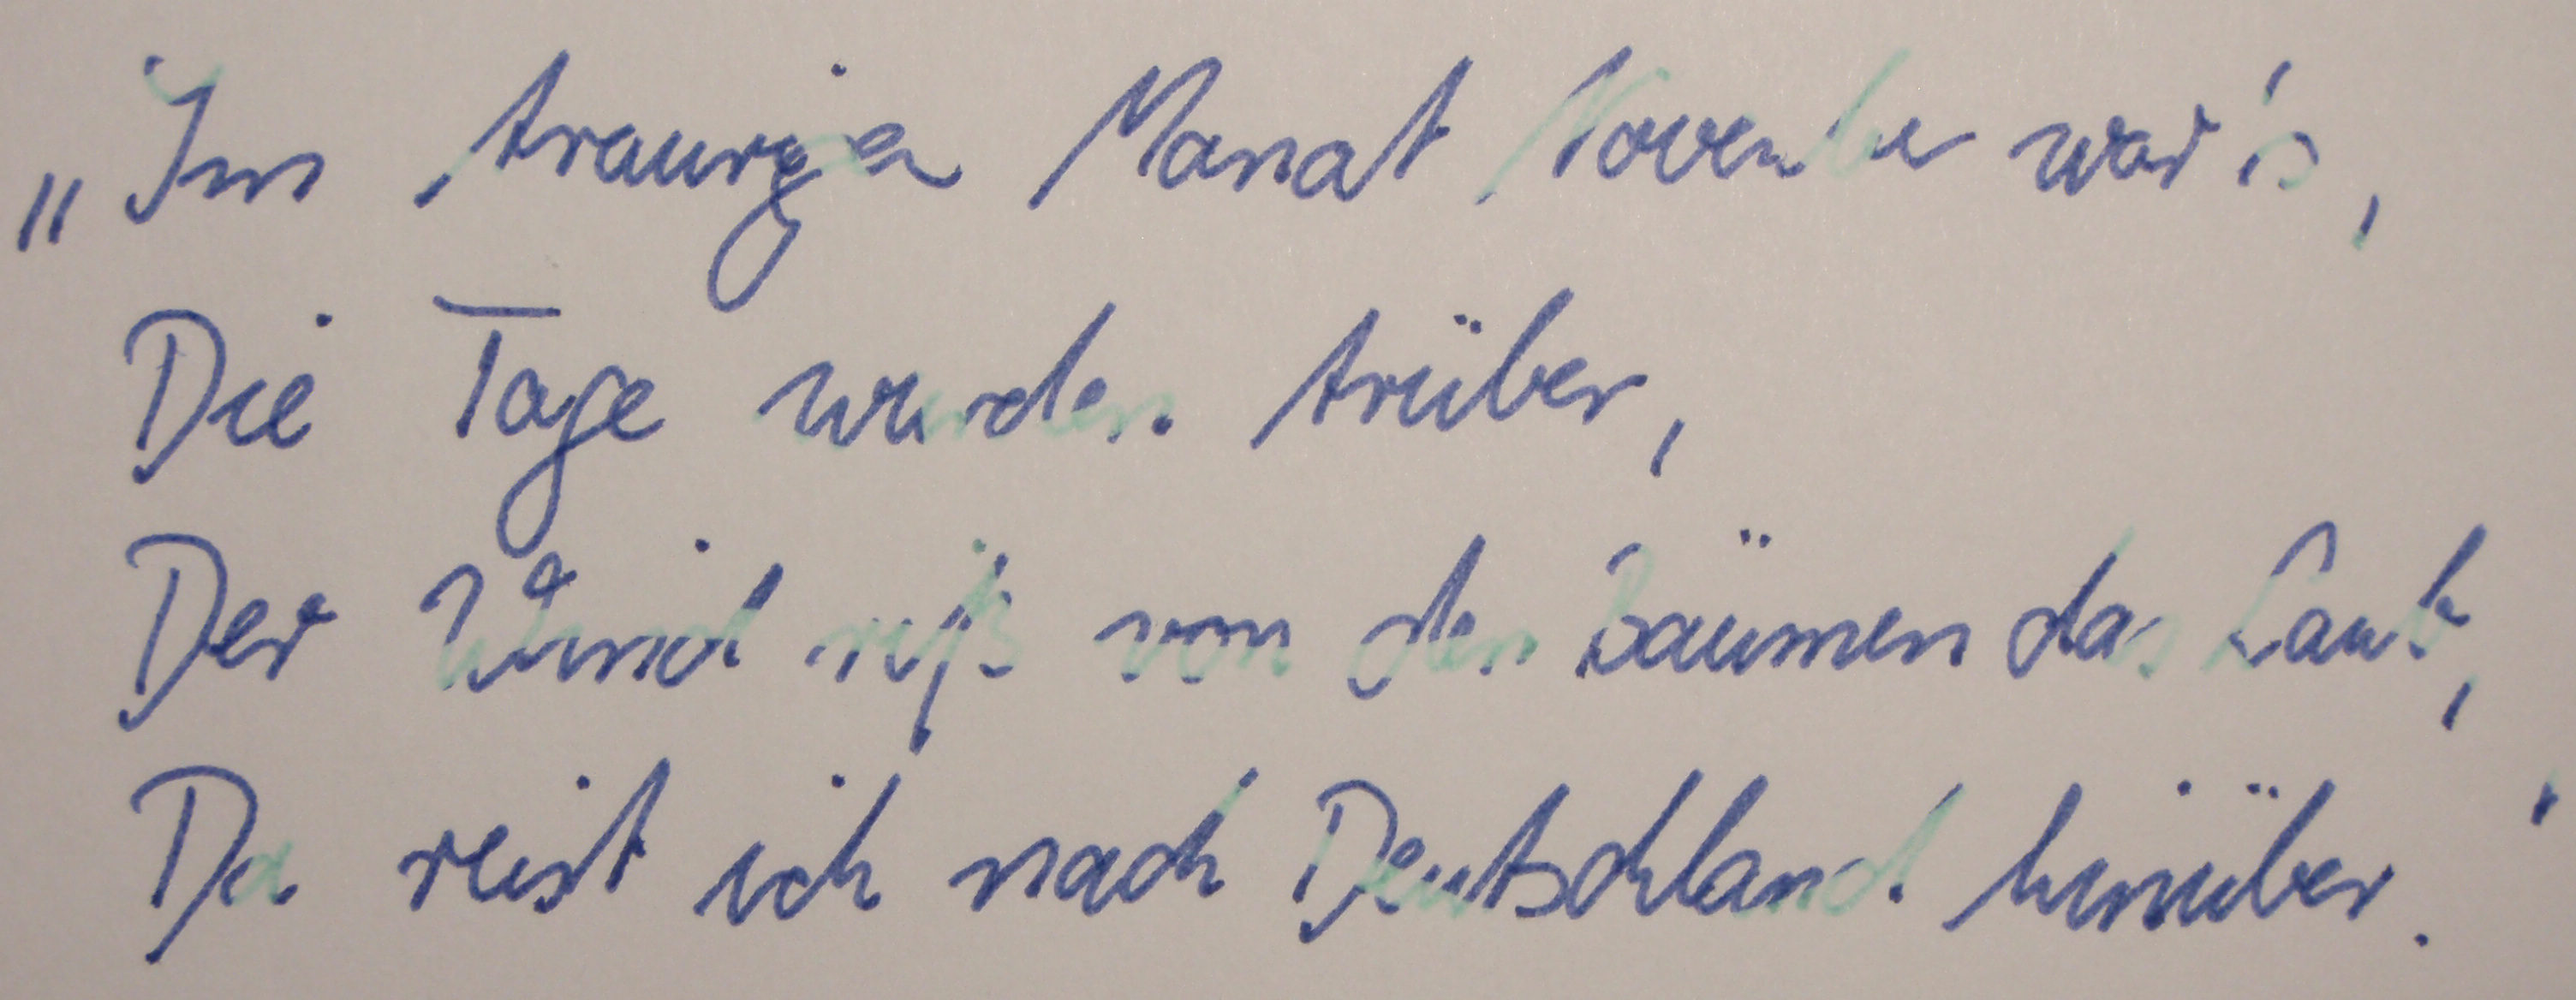 „Im traurigen Monat November war's,
Die Tage wurden trüber,
Der Wind riß von den Bäumen das Laub,
Da reist ich nach Deutschland hinüber.'